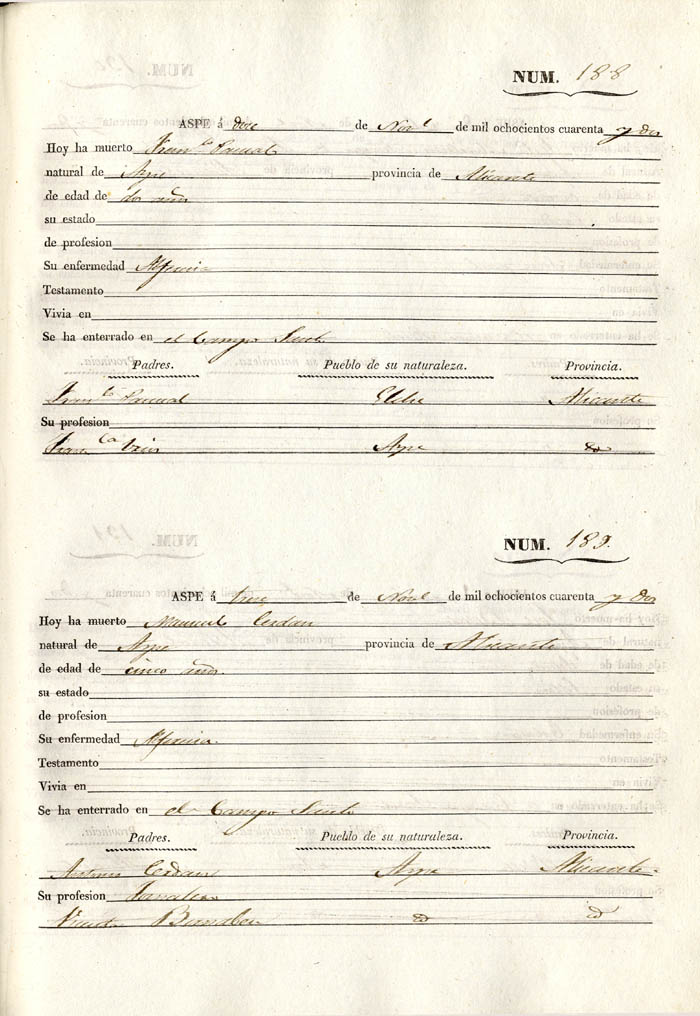 NUM. 188
ASPE á doce de Nov.e de mil ochocientos cuarenta y dos
Hoy ha muerto Fran.co Pascual
natural de Aspe provincia de Alicante
de edad de dos años
su estado
de profesion
Su enfermedad
Testamento
Vivia en
Se ha enterrado en el Campo Santo
Padres. Pueblo de su naturaleza. Provincia.
Fran.co Pascual Elche Alicante
Su profesion
Fran.ca Aspe id
NUM. 189.
ASPE á trece de Nov.e de mil ochocientos cuarenta y dos
Hoy ha muerto Manuel Cerdan
natural de Aspe provincia de Alicante
de edad de cinco años
su estado
de profesion
Su enfermedad
Testamento
Vivia en
Se ha enterrado en el Campo Santo
Padres. Pueblo de su naturaleza. Provincia.
Antonio Cerdan Aspe Alicante
Su profesion Jornalero
id id